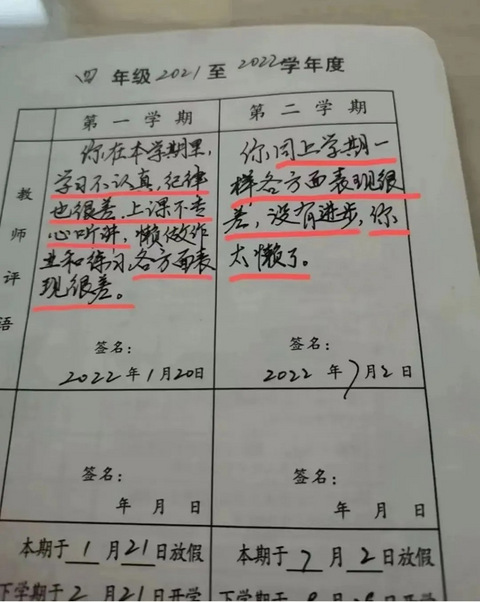 四年级2021至2022学年度
第一学期
第二学期
教师评语
你在本学期里,
学习不认真,纪律
也很差,上课不专
心听讲,懒做作
业和练习,各方面表
现很差。
签名:
2022年1月20日
你同上学期一
样各方面表现很
差,没有进步,你
太懒了。
签名:
2022年7月2日
签名:
年 月 日
签名:
年 月 日
本期于1月21日放假
本期于7月2日放假
下学期于2月21日开学
下学期于